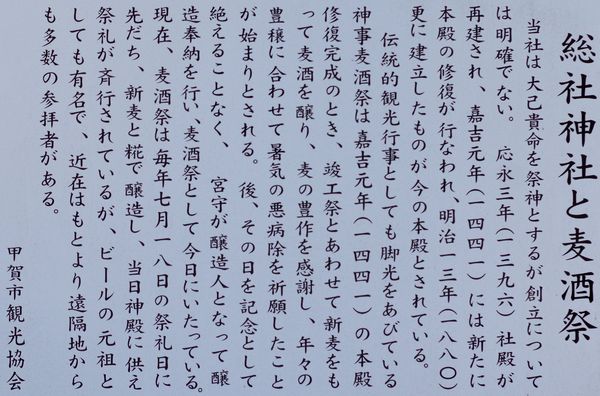 総社神社と麦酒祭
当社は大己貴命を祭神とするが創立について
は明確でない。応永三年(一三九六)社殿が
再建され、嘉吉元年(一四四一)には新たに
本殿の修復が行なわれ、明治一三年(一八八〇)
更に建立したものが今の本殿とされている。
伝統的観光行事としても脚光をあびている
神事麦酒祭は嘉吉元年(一四四一)の本殿
修復完成のとき、竣工祭とあわせて新麦をも
って麦酒を醸り、麦の豊作を感謝し、年々の
豊穣に合わせて暑気の悪病除を祈願したこと
が始まりとされる。後、その日を記念として
絶えることなく、宮守が醸造人となって醸
造奉納を行い、麦酒祭として今日にいたっている。
現在、麦酒祭は毎年七月一八日の祭礼日に
先だち、新麦と糀で醸造し、当日神殿に供え
祭礼が斉行されているが、ビールの元祖と
しても有名で、近在はもとより遠隔地から
も多数の参拝者がある。
甲賀市観光協会